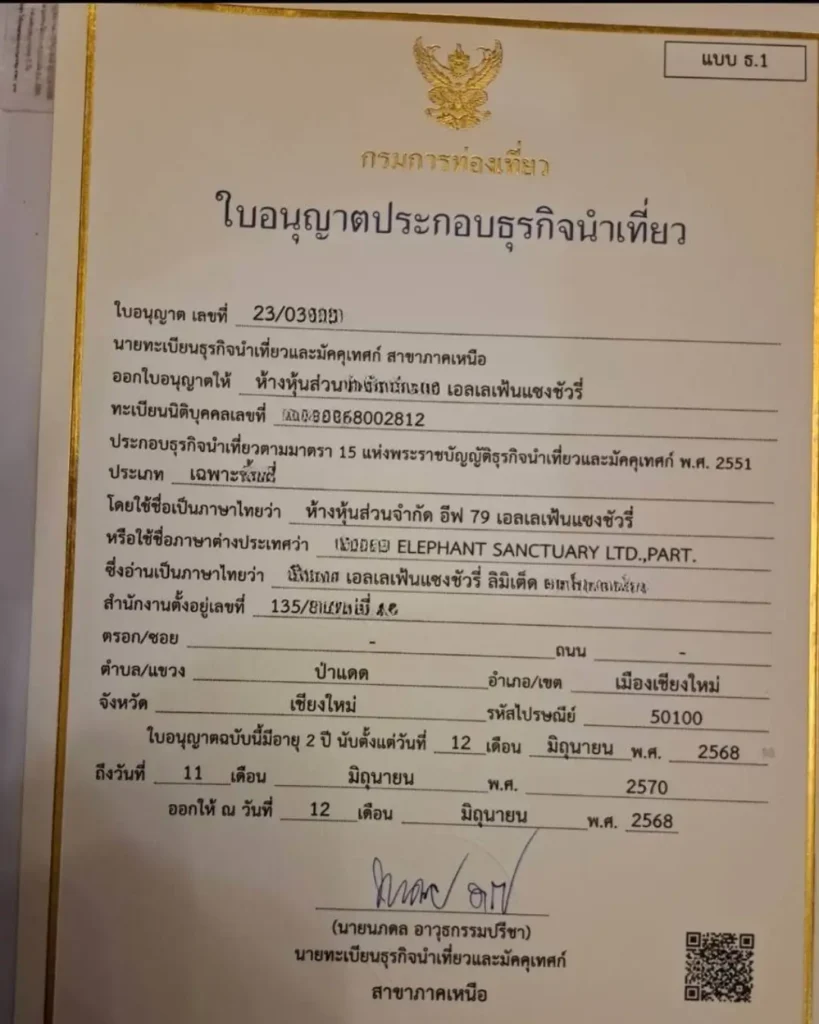 แบบ ธ.1
กรมการท่องเที่ยว
ใบอนุญาตประกอบธุรกิจนำเที่ยว
ใบอนุญาต เลขที่
นายทะเบียนธุรกิจนำเที่ยวและมัคคุเทศก์ สาขาภาคเหนือ
ออกใบอนุญาตให้ ห้างหุ้นส่วน เอลเลเฟ้นแซงชัวรี่
ทะเบียนนิติบุคคลเลขที่
ประกอบธุรกิจนำเที่ยวตามมาตรา 15 แห่งพระราชบัญญัติธุรกิจนำเที่ยวและมัคคุเทศก์ พ.ศ. 2551
ประเภท
โดยใช้ชื่อเป็นภาษาไทยว่า ห้างหุ้นส่วนจำกัด อีฟ 79 เอลเลเฟ้นแซงชัวรี่
หรือใช้ชื่อภาษาต่างประเทศว่า ELEPHANT SANCTUARY LTD.,PART.
ซึ่งอ่านเป็นภาษาไทยว่า เอลเลเฟ้นแซงชัวรี่ ลิมิเต็ด
สำนักงานตั้งอยู่เลขที่
ตรอก/ซอย - ถนน -
ตำบล/แขวง ป่าแดด อำเภอ/เขต เมืองเชียงใหม่
จังหวัด เชียงใหม่ รหัสไปรษณีย์ 50100
ใบอนุญาตฉบับนี้มีอายุ 2 ปี นับตั้งแต่วันที่ 12 เดือน มิถุนายน พ.ศ. 2568
ถึงวันที่ 11 เดือน มิถุนายน พ.ศ. 2570
ออกให้ ณ วันที่ 12 เดือน มิถุนายน พ.ศ. 2568
(นายนภดล อาวุธกรรมปรีชา)
นายทะเบียนธุรกิจนำเที่ยวและมัคคุเทศก์
สาขาภาคเหนือ